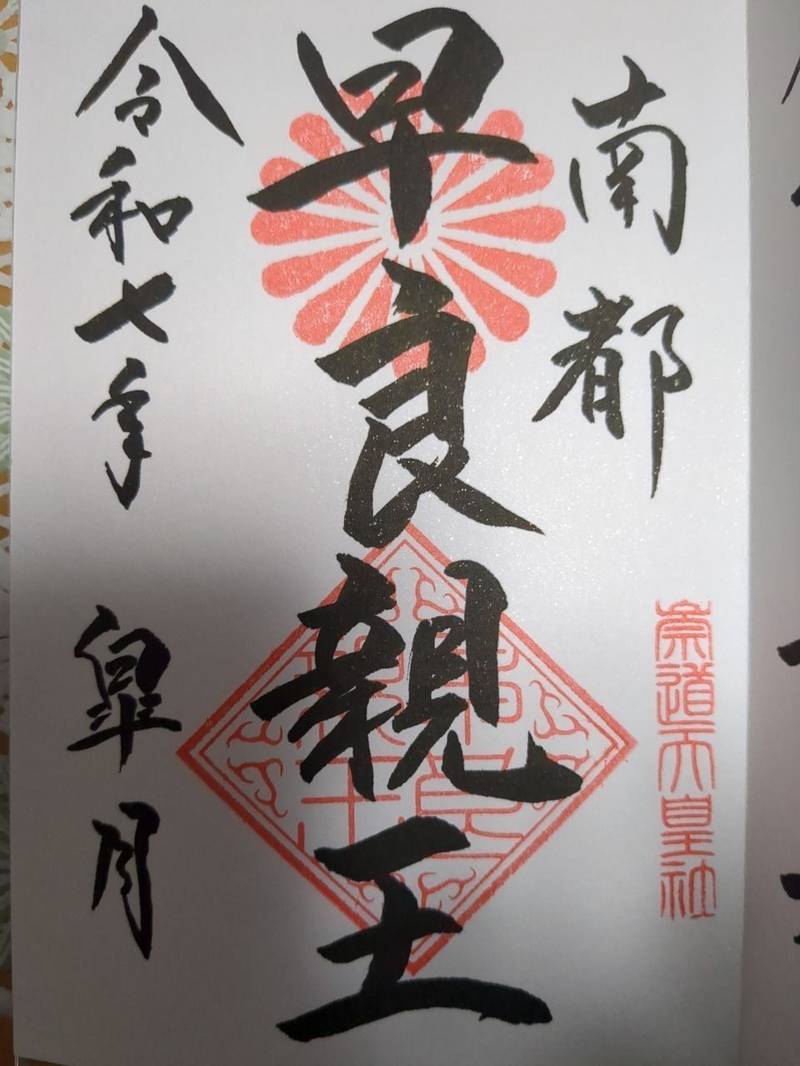 南都
崇道天皇社
早良親王
令和七年 皐月